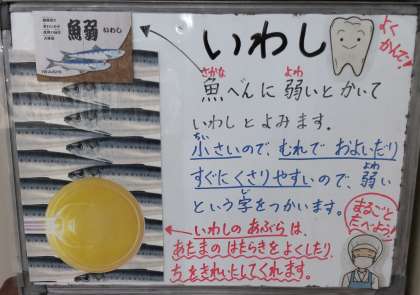 魚弱 いわし
いわし
よく
かんで!
さかな よわ
魚へんに 弱いと かいて
いわしとよみます。
ちい
小さいので、むれで およいだり
よわ
すぐにくさりやすいので、弱い
じ
という字をつかいます。
まるごと
たべよう!
いわしの あぶらは、
あたまの はたらきを よくしたり、
ちをきれいにしてくれます。